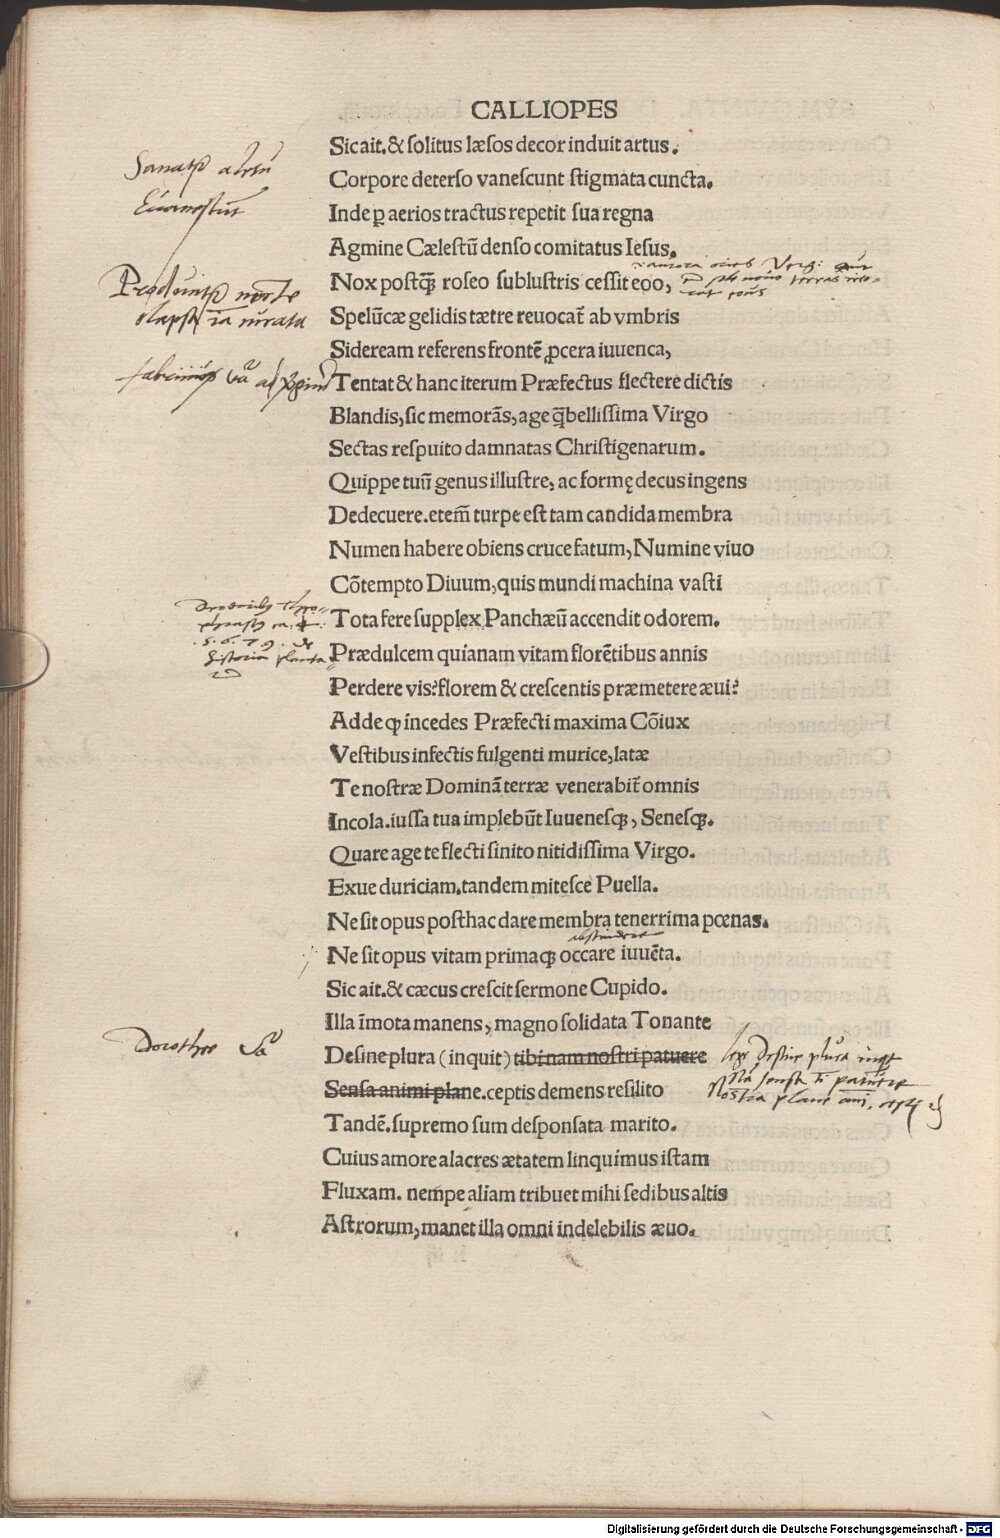 CALLIOPES
Sic ait.& solitus læsos decor induit artus.
Corpore deterso vanescunt stigmata cuncta.
Inde ꝑ aerios tractus repetit sua regna
Agmine Cælestũ denso comitatus Iesus.
Nox postq̃ roseo sublustris cessit eoo,
Spelũcæ gelidis tætre reuocat̃ ab vmbris
Sideream referens frontẽ ꝓcera iuuenca,
Tentat & hanc iterum Præfectus flectere dictis
Blandis, sic memorãs, age q̃ bellissima Virgo
Sectas respuito damnatas Christigenarum.
Quippe tuũ genus illustre, ac formę decus ingens
Dedecuere.etem̃ turpe est tam candida membra
Numen habere obiens cruce fatum, Numine viuo
Cõtempto Diuum, quis mundi machina vasti
Tota fere supplex Panchæũ accendit odorem.
Prædulcem quianam vitam florẽtibus annis
Perdere vis? florem & crescentis præmetere æui?
Adde ꝙ incedes Præfecti maxima Cõiux
Vestibus infectis fulgenti murice, latæ
Te nostræ Dominã terræ venerabit̃ omnis
Incola.iussa tua implebũt Iuuenesqꝫ, Senesqꝫ.
Quare age te flecti sinito nitidissima Virgo.
Exue duriciam.tandem mitesce Puella.
Ne sit opus posthac dare membra tenerrima pœnas.
Ne sit opus vitam primaqꝫ occare iuuẽta.
Sic ait.& cæcus crescit sermone Cupido.
Illa ĩmota manens, magno solidata Tonante
Dorothee
Desine plura (inquit) tibi nam nostri patuere
Sensa animi plane.ceptis demens resilito
Tandẽ.supremo sum desponsata marito.
Cuius amore alacres ætatem linquimus istam
Fluxam. nempe aliam tribuet mihi sedibus altis
Astrorum, manet illa omni indelebilis æuo.
Digitalisierung gefördert durch die Deutsche Forschungsgemeinschaft - DFG